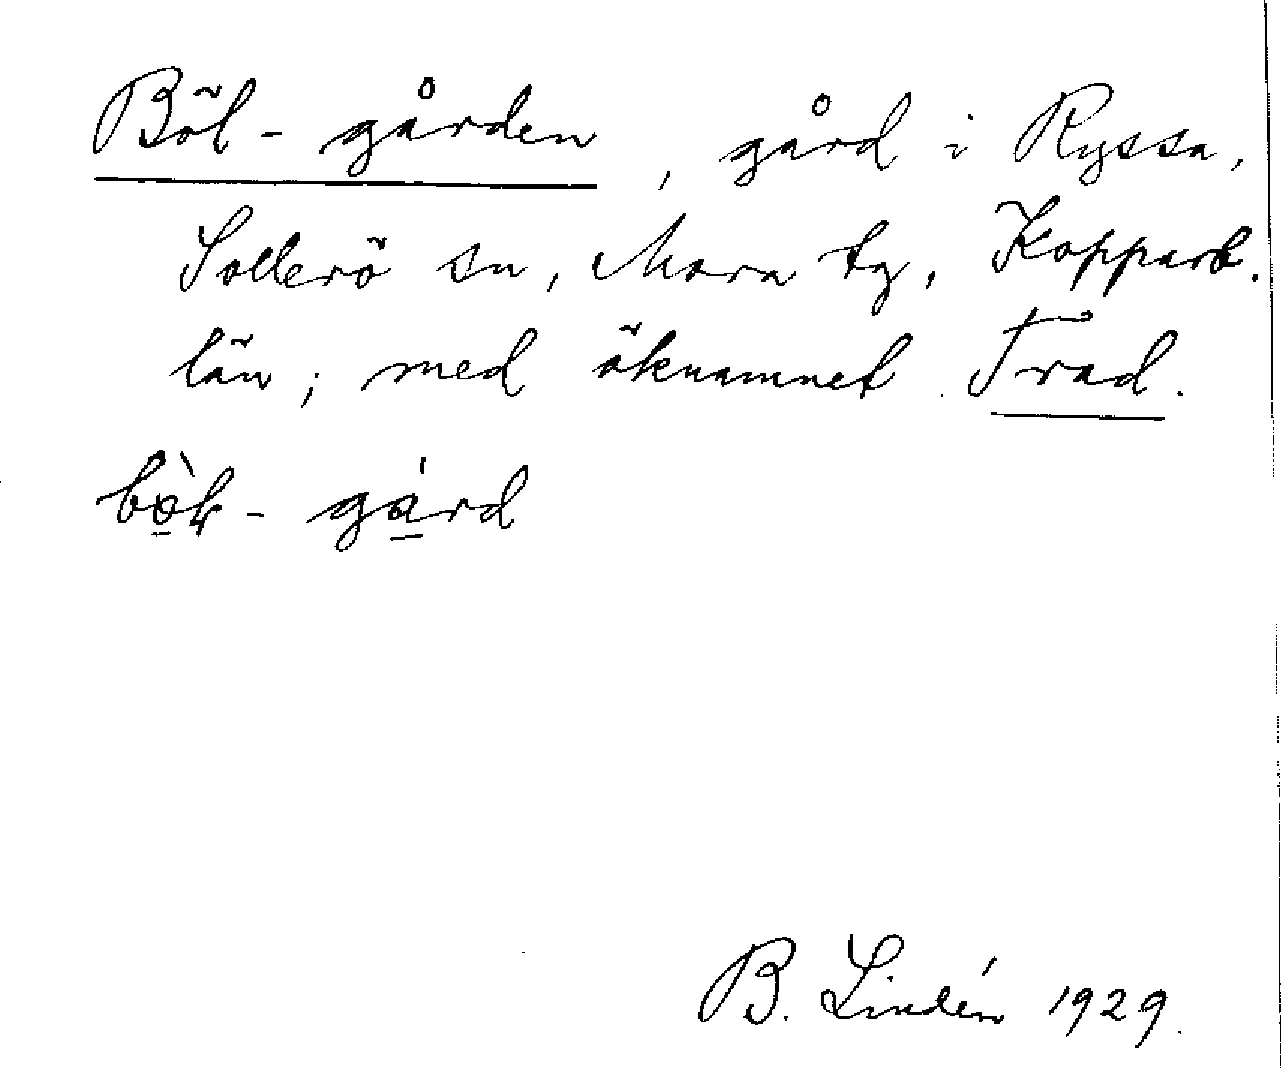 Böl-gården, gård i Ryssa,
Sollerö sn, Mora tg, Kopparb.
län; med öknamnet Trad.
B. Lindén 1929.